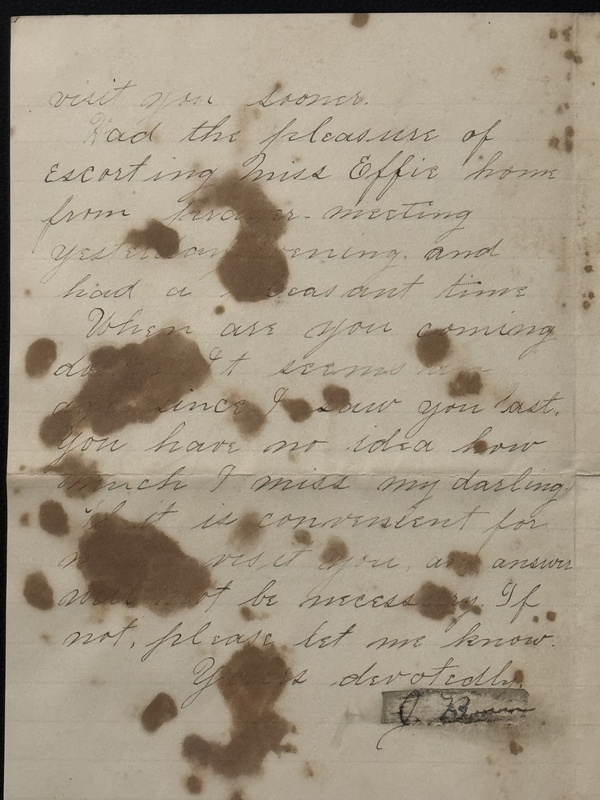 visit you sooner.
Had the pleasure of
escorting Miss Effie home
from prayer-meeting
yesterday evening. and
had a pleasant time
When are you coming
It seems an
since I saw you last.
You have no idea how
much I miss my darling.
If it is convenient for
visit you, an answer
will not be necessary. If
not, please let me know.
Yours devotedly,
J.